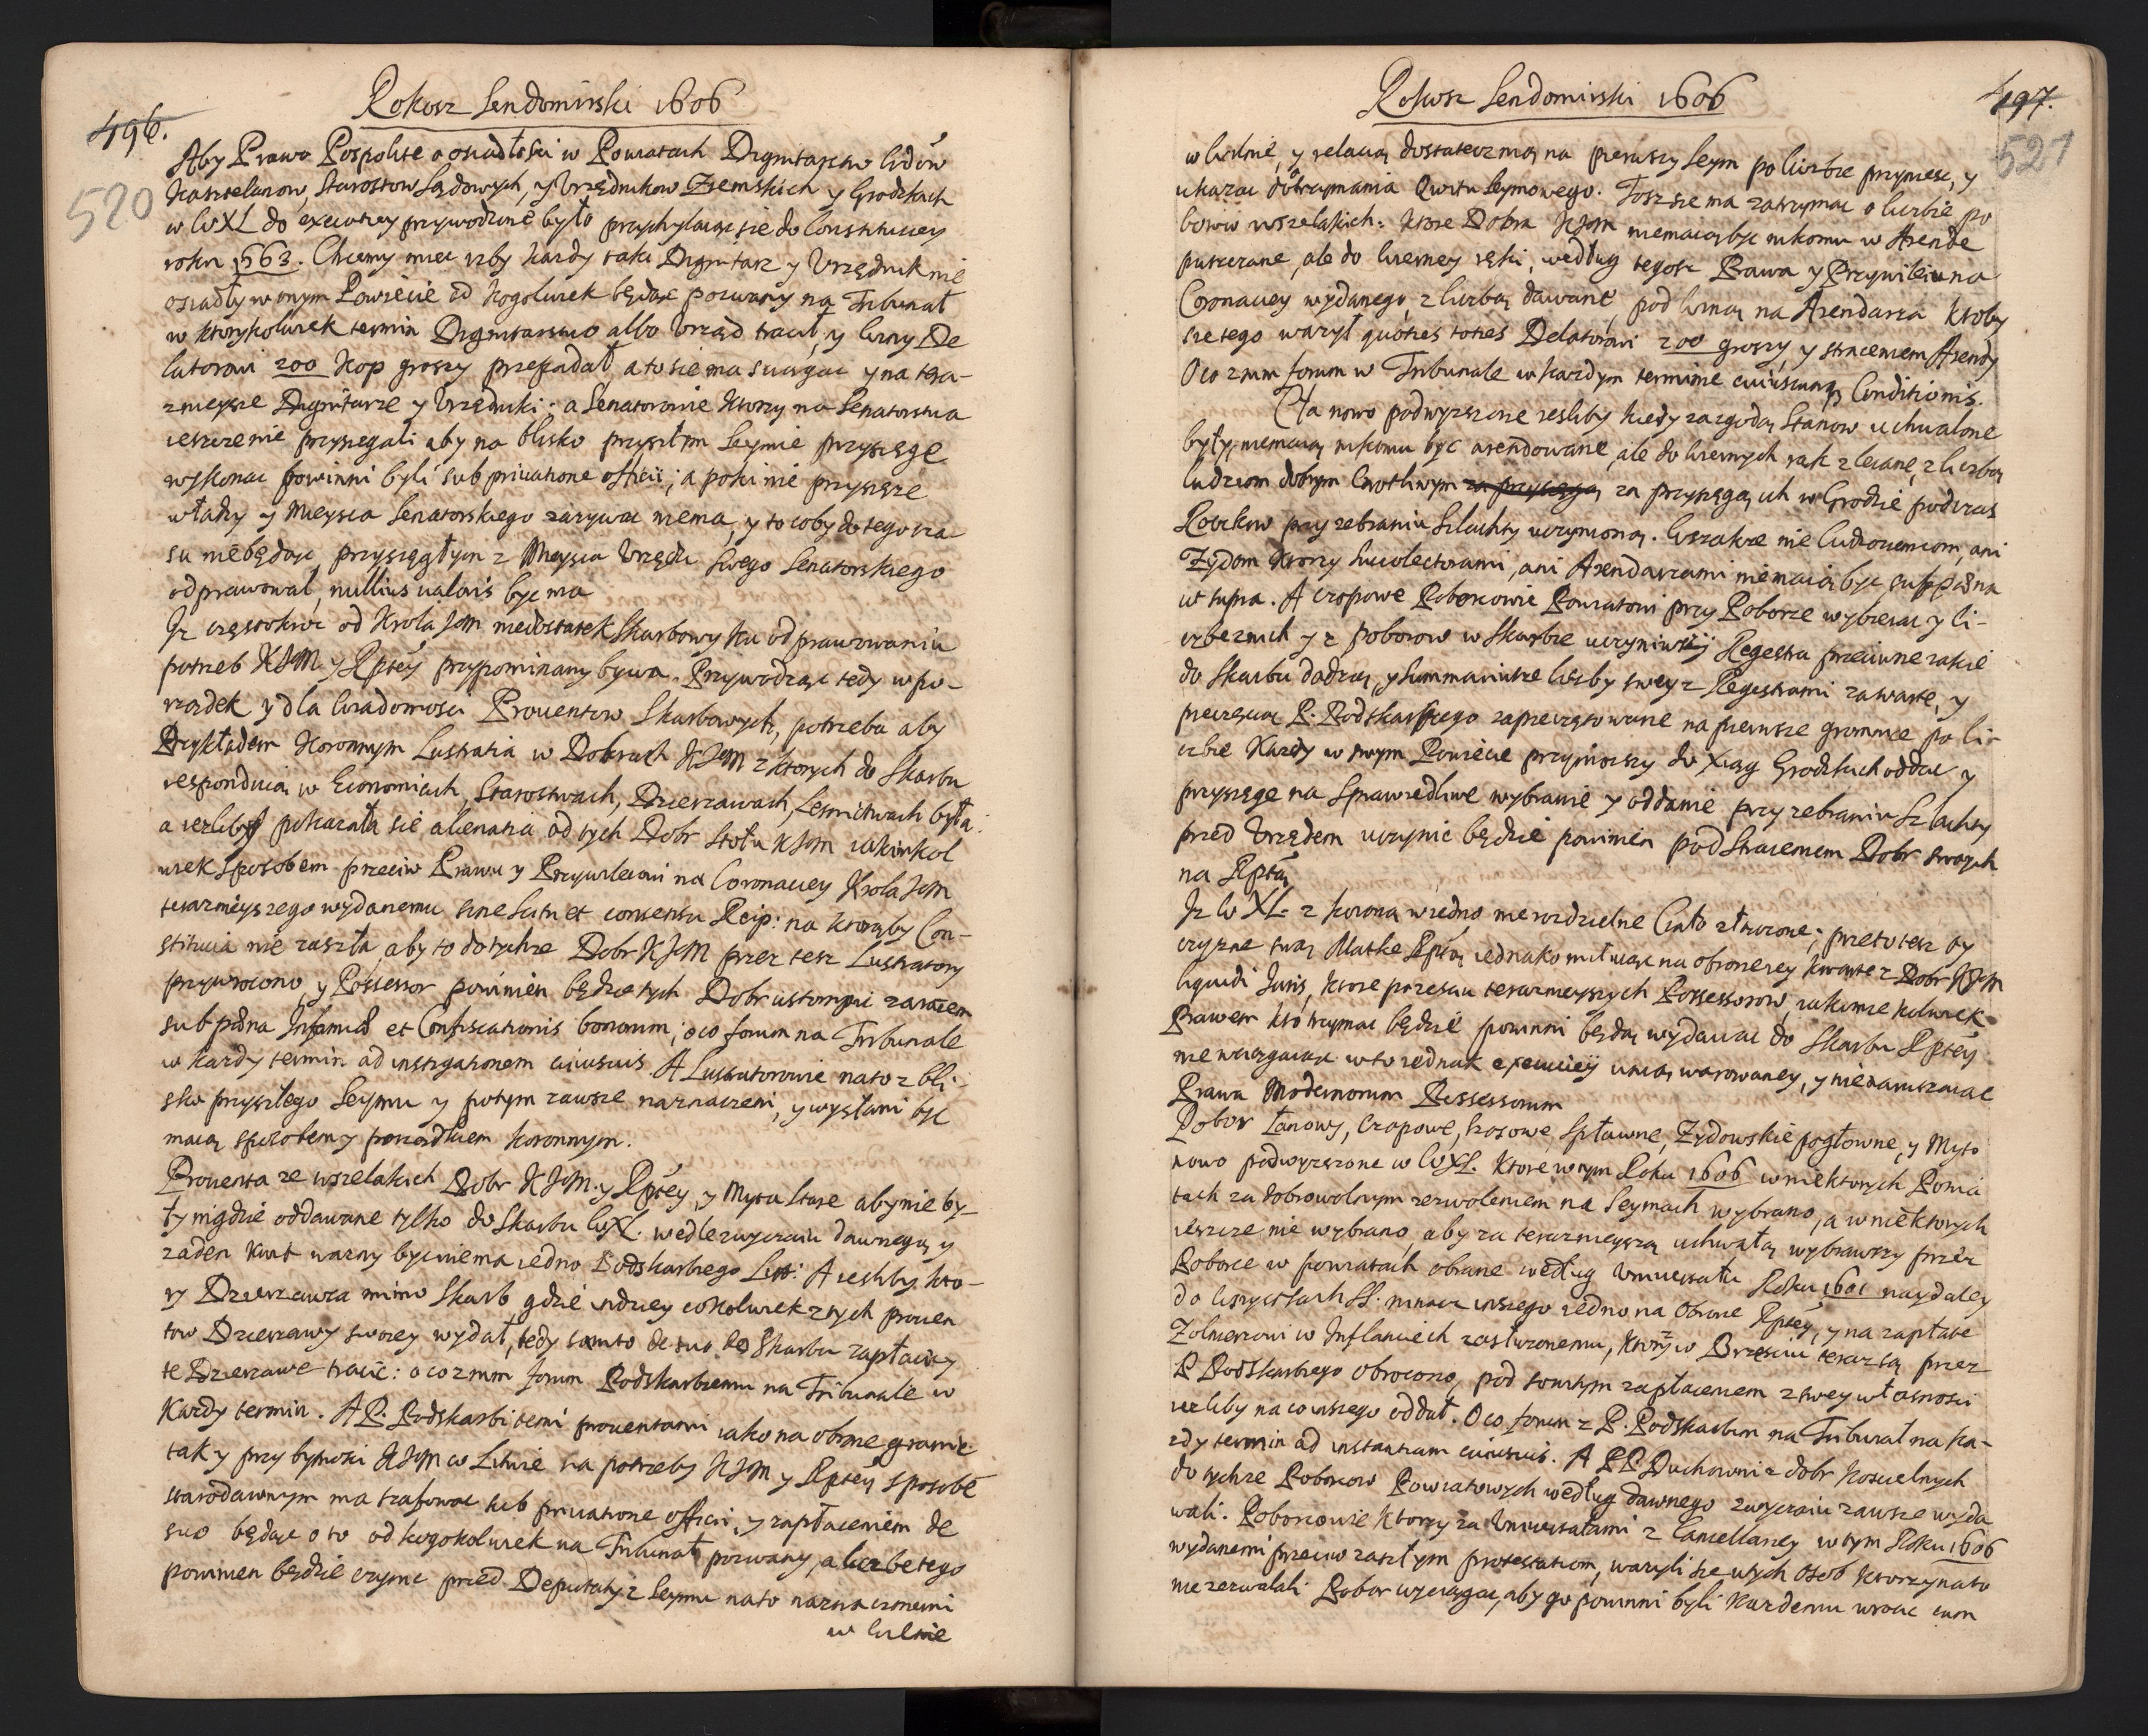 Rokosz Sendomirski 1606
496.
520
Aby Prawo Pospolite o osiadłosci w Powiatach Dignitarstw
Kasztelanow, Starostow Sądowych, y Urzędnikow Ziemskich y Grodzkich
w WXL do executiey przywodzone było przychylaiąc sie do Constituciey
roku 1563. Chcemy miec izby kazdy taki Dignitarz y Urzędnik nie
osiadły w onym Powiecie od kogolwiek będąc pozwany na Tribunał
w ktorykolwiek termin Dignitarstwo albo Urząd tracił, y winy De
latorowi 200 kop groszy przepadał, a to sie ma sciągac y na tera-
znieysze Dignitarze y Urzędniki; a Senatorowie ktorzy na Senatorstwa
ieszcze nie przysięgali aby na blisko przyszłym Seymie przysięgę
wykonac powinni byli sub privatione officii; a poki nie przysięze
władzy y mieysca Senatorskiego zazywac niema, y to coby do tego cza
su niebędąc przysięgłym z Mieysca Urzędu swego Senatorskiego
odprawował, nullius valoris byc ma
Iz częstokroc od Krola Jgm niedostatek Skarbowy ku odprawowaniu
potrzeb KJM y Rptey przypominany bywa. Przywodząc tedy w po-
rządek y dla wiadomosci Prouentow Skarbowych, potrzeba aby
Przykładem Koronnym Lustratia w Dobrach KJM z ktorych do Skarbu
responduią w Economiach, Starostwach, Dzierzawach, Lesnictwach była.
a iezliby pokazała sie alienatia od tych Dobr Stołu KJM iakimkol
wiek sposobem przeciw Prawu y Przywileiowi na Coronaciey Krola Jgm
terazneyszego wydanemu sine scitu et consensu Reip: na ktorąby Con-
stitucia nie zaszła, aby to do tychze Dobr KJM przez tesz Lustratory
przywrocono, y Possessor powinien będzie tych Dobr ustompic zarazem
sub pœna Infamiæ et Confiscationis bonorum; o co forum na Tribunale
w kazdy termin ad instigationem cuiusuis. A Lustratorowie na to z bli-
sko przyszłego Seymu y potym zawsze naznaczeni, y wysłani byc
maią sposobem y porządkiem Koronnym.
Prouenta ze wszelakich Dobr KJM. y Rptey, y Myta Stare aby nie by-
ły nigdzie oddawane tylko do Skarbu WXL. wedle zwyczaiu dawnego, y
zaden kwit wazny byc niema iedno Podskarbiego Litt: A iesliby kto-
ry Dzierzawca mimo Skarb gdzie indziey cokolwiek z tych prouen
tow Dzierzawy swoiey wydał, tedy samto de suo do Skarbu zapłacic y
te Dzierzawe tracic: o co z nim forum Podskarbiemu na Tribunale w
Kazdy termin. A P. Podskarbi temi prouentami iako na obrone granic
tak y przy bytnosci KJM w Litwie na potrzeby KJM y Rptey sposobē
starodawnym ma szafowac sub privatione officii, y zapłaceniem de
suo będąc o to od kogokolwiek na Tribunał pozwany, a liczbe tego
powinien będzie czynic przed Deputaty z Seymu na to naznaczonemi
w Wilnie
Rokosz Sendomirski 1606
497.
521
w Wilnie, y relacią dostateczną na pierwszy Seym po liczbie przyniesc, y
ukazac dotrzymania Qwitu Seymowego. Tosz sie ma zatrzymac o liczbie po
borow wszelakich: Ktore Dobra KJM niemaią byc nikomu w Arende
puszczane, ale do wierney ręki, według tegosz Prawa y Przywileiu na
Coronaciey wydanego, z liczbą dawane, pod winą na Arendarza ktoby
sie tego wazył quoties toties Delatorowi 200 groszy, y straceniem Arendy
O co z nim forum w Tribunale w kazdym terminie cuiuscunq; Conditionis.
Cła nowo podwyzszone iesliby kiedy za zgodą Stanow uchwalone
były, niemaią nikomu byc arendowane, ale do wiernych rąk zlecane, z liczbą
ludziom dobrym Cnotliwym za przysięgą, za przysięgą ich w Grodzie podczas
Roczkow przy zebraniu Szlachty uczynioną. Wszakze nie Cudzoziemcom, ani
Zydom ktorzy Succolectorami, ani Arendarzami niemaią byc, sub pœna
ut supra. A czopowe Poborcowie Powiatowi przy Poborze wybierac y li-
czbe z nich y z poborow w Skarbie uczyniwszy Regestra przeciwne takie
do Skarbu dadzą, y Summariusze liczby swey z Regestrami zawarte, y
pieczęcią P. Podskarbiego zapieczętowane na pierwsze gromnice po li-
czbie Kazdy w swym Powiecie przyniosszy do Xiąg Grodzkich oddac y
przysięge na sprawiedliwe wybranie y oddanie przy zebraniu Szlachty
przed Urzędem uczynic będzie powinien pod straceniem Dobr swoych
na Rptą
Iz WXL. z Koroną w iedno nierozdzielne Ciało złączone; przeto tesz oy
czyzne swą Matke Rptą iednako miłuiąc na obrone iey kwarte z Dobr KJM
liquidi Iuris, ktore po zesciu terazneyszych Possessorow, iakimze kolwiek
Prawem kto trzymac będzie powinni będą wydawac do Skarbu Rptey
nie wciągaiąc w to iednak execuciey unią warowaney, y nienaruszaiąc
Prawa Modernorum Possessorum
Pobor Łanowy, Czopowe, Szosowe, Spławne, Zydowskie pogłowne, y Myto
nowo podwyzszone w WXL. ktore w tym Roku 1606 w niektorych Powia
tach za dobrowolnym zezwoleniem na Seymach wybrano, a w niektorych
ieszcze nie wybrano, aby za terazneyszą uchwałą wybrawszy przez
Poborce w powiatach obrane według Uniwersału Roku 1601 naydaley
do wszystkich SS. ninacz inszego iedno na Obrone Rptey, y na zapłate
Zolnierzowi w Inflanciech zasłuzonemu, ktory w Brzesciu teraz są przez
P. Podskarbiego obrocono, pod sowitym zapłaceniem z swey własnosci
iezliby na co inszego oddał. O co forum z P. Podskarbim na Tribunał na Ka-
zdy termin ad instantiam cuiusuis. A PP. Duchowni z dobr koscielnych
do tychze Poborcow Powiatowych według dawnego zwyczaiu zawsze wyda
wali. Poborcowie ktorzy za Uniwersałami z Cancellariey w tym Roku 1606
wydanemi przeciw zaszłym protestatiom, wazyli sie u tych osob ktorzy na to
nie zezwalali Pobor wyciągac, aby go powinni byli kazdemu wrocic cum